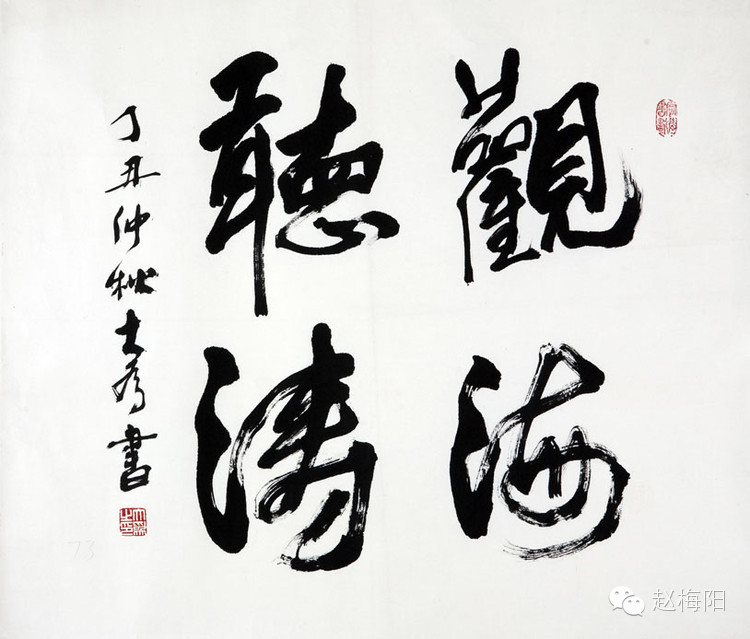 觀海
聽濤
丁丑仲秋大為書
73
赵梅阳